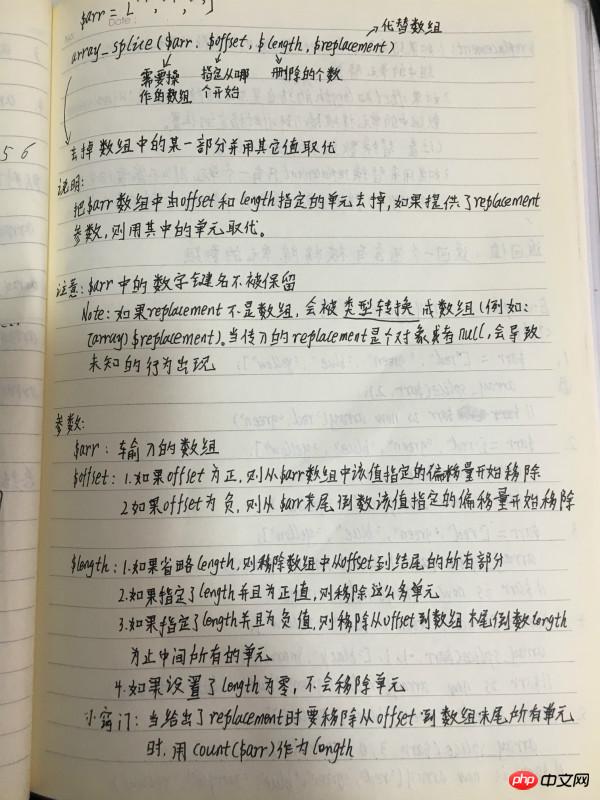 $arr = [
Date:
代替数组
array_splice($arr. $offset, $length, $replacement)
需要操作的数组
指定从哪个开始
删除的个数
5 6
去掉数组中的某一部分并用其它值取代
说明:
把$arr数组中由offset和length指定的单元去掉,如果提供了replacement
参数,则用其中的单元取代。
注意:$arr中的数字键名不被保留
Note:如果replacement不是数组,会被类型转换成数组(例如:
(array)$replacement)。当传入的replacement是个对象或者null,会导致
未知的行为出现
参数:
$arr:输入的数组
$offset:1.如果offset为正,则从$arr数组中该值指定的偏移量开始移除
2.如果offset为负,则从$arr末尾倒数该值指定的偏移量开始移除
$length:1.如果省略length,则移除数组中从offset到结尾的所有部分
2.如果指定了length并且为正值,则移除这么多单元
3.如果指定了length并且为负值,则移除从offset到数组末尾倒数length
为止中间所有的单元
4.如果设置了length为零,不会移除单元
小窍门:当给出了replacement时要移除从offset到数组末尾所有单元
时,用count($arr)作为length
php中文网